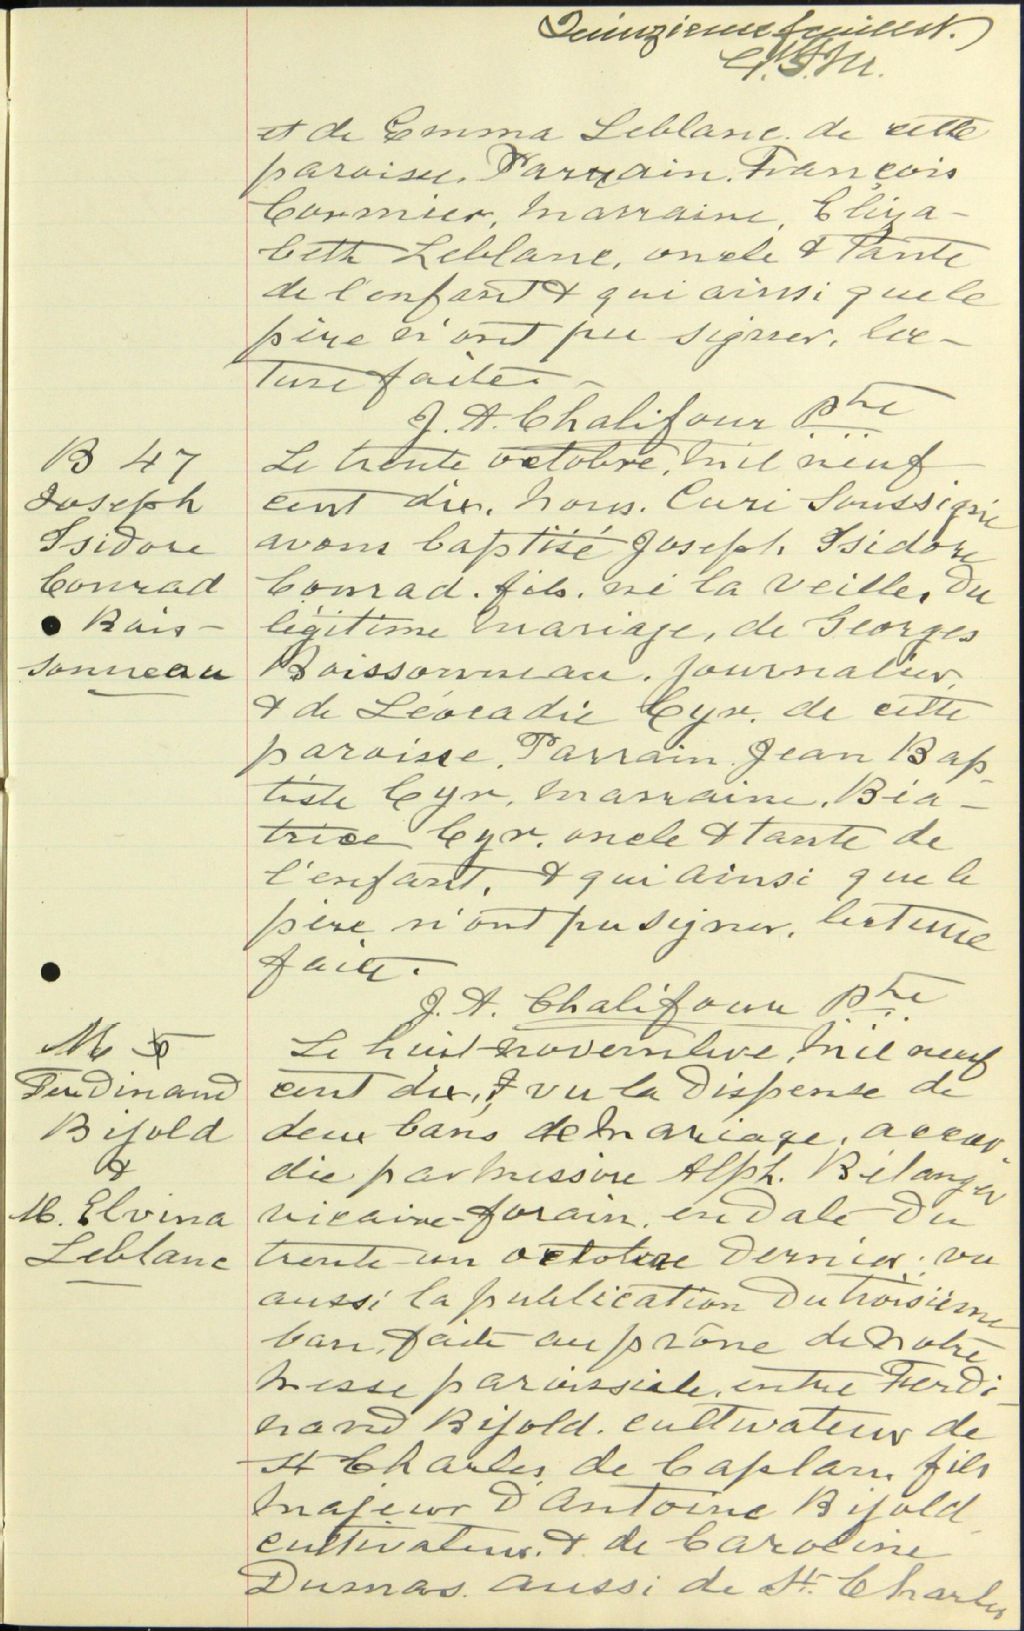 Quinzieme feuillet.
et de Emma Leblanc. de cette
paroisse. Parrain. François
Cormier, Marraine, Eliza-
beth Leblanc, oncle & tante
de l'enfant & qui ainsi que le
père n'ont pu signer, lec-
ture faite.
J. A. Chalifour Ptre
B 47
Joseph
Isidore
Conrad
Bois-
sonneau
Le trente octobre, mil neuf
cent dix, nous. Curé Soussigné
avons baptisé Joseph Isidore
Conrad. fils. né la veille, du
légitime mariage, de Georges
Boissonneau. journalier,
& de Léocadie Cyr. de cette
paroisse, Parrain Jean Bap
tiste Cyr, Marraine. Béa-
trice Cyr. oncle & tante de
l'enfant, & qui ainsi que le
père n'ont pu signer, lecture
faite.
J. A. Chalifour Ptre
M 5
Ferdinand
Bijold
&
M. Elvina
Leblanc
Le huit novembre, mil neuf
cent dix, & vu la dispense de
deux bans de mariage, accor
dée par Messire Alph. Bélanger
vicaire-forain, en date du
trente-un octobre dernier; vu
aussi la publication du troisième
ban, faite au prône de notre
Messe paroissiale, entre Ferdi
nand Bijold. cultivateur de
St Charles de Caplan, fils
Majeur d'Antoine Bijold
cultivateur. & de Caroline
Dumas. aussi de St. Charles